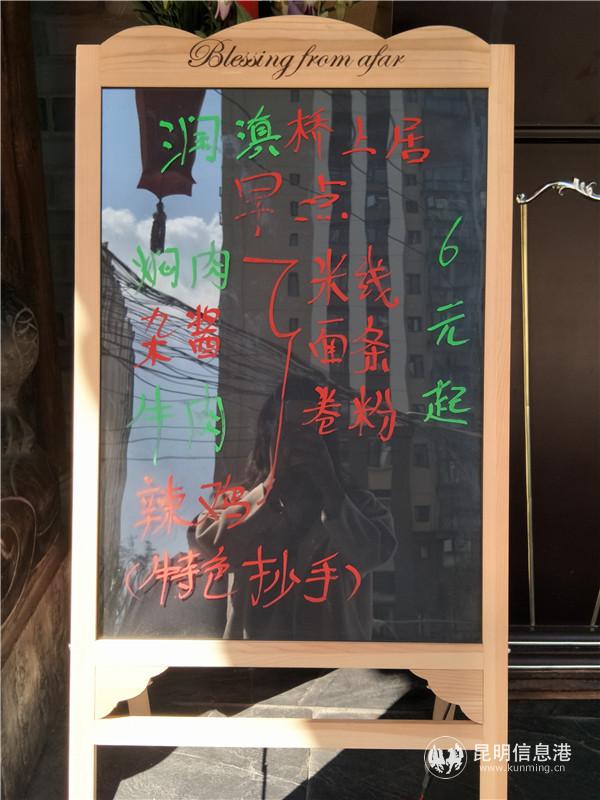 Blessing from afar
润澳桥上居
早点
焖肉 米线
杂酱 面条
牛肉 卷粉
辣鸡
(特色抄手)
6元起
昆明信息港
www.kunming.cn